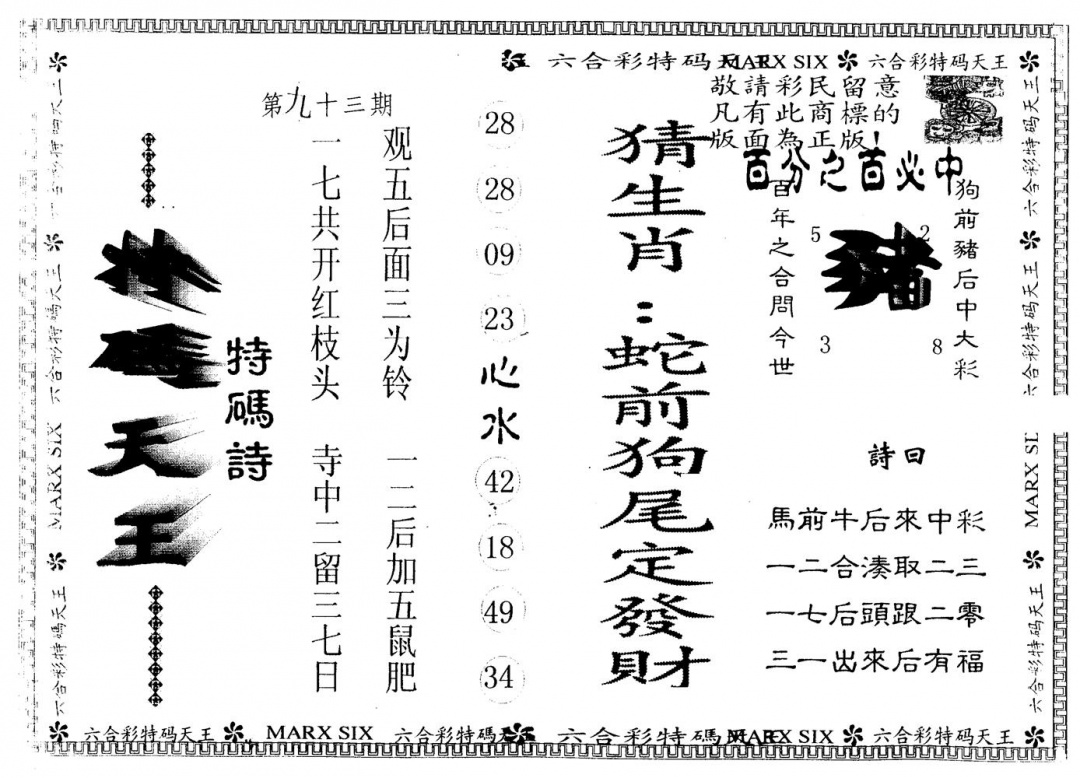 六合彩特码天王
MARX SIX
六合彩特码天王
敬請彩民留意
凡有此商標的
版面為正版！
百分之百必中
狗前豬后中大彩
豬
5
2
3
8
百年之合問今世
詩曰
馬前牛后來中彩
一二合湊取二三
一七后頭跟二零
三一出來后有福
猜生肖：蛇前狗尾定發財
28
28
09
23
心水
42
18
49
34
第九十三期
观五后面三为铃
一二后加五鼠肥
一七共开红枝头
寺中二留三七日
特碼詩
特碼天王
六合彩特码天王
MARX SIX
六合彩特码天王
六合彩特码天王
六合彩特码天王
MARX SIX
六合彩特码天王
六合彩特码天王
六合彩特码天王
MARX SIX
六合彩特碼天王
六合彩特碼天王
MARX SIX
六合彩特码天王